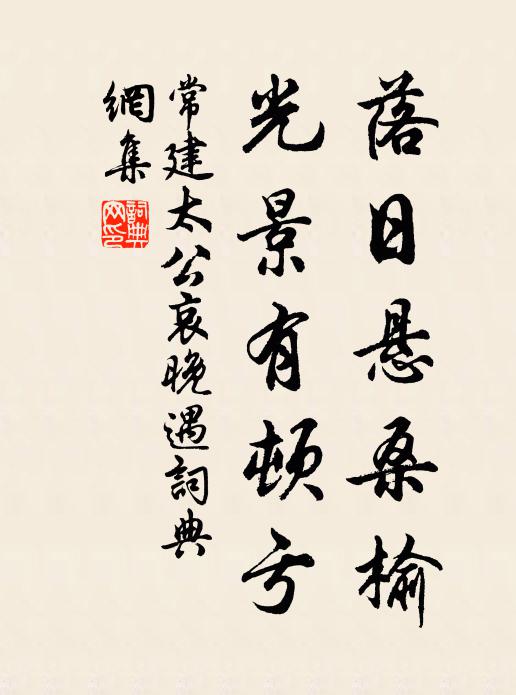 落日悬桑榆
光景有顿亏
常建太公哀晚遇詞典
網集
詞典
网印